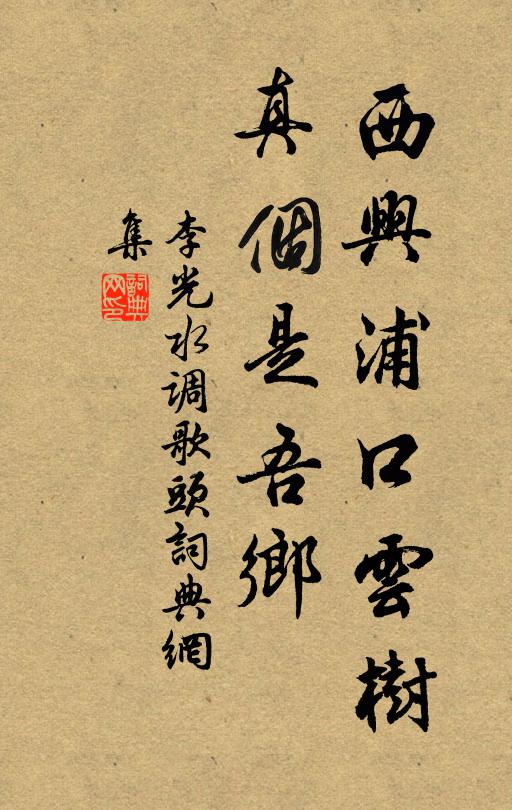 西興浦口雲樹
真個是吾鄉
李光水调歌頭詞典網
集
詞典
网印